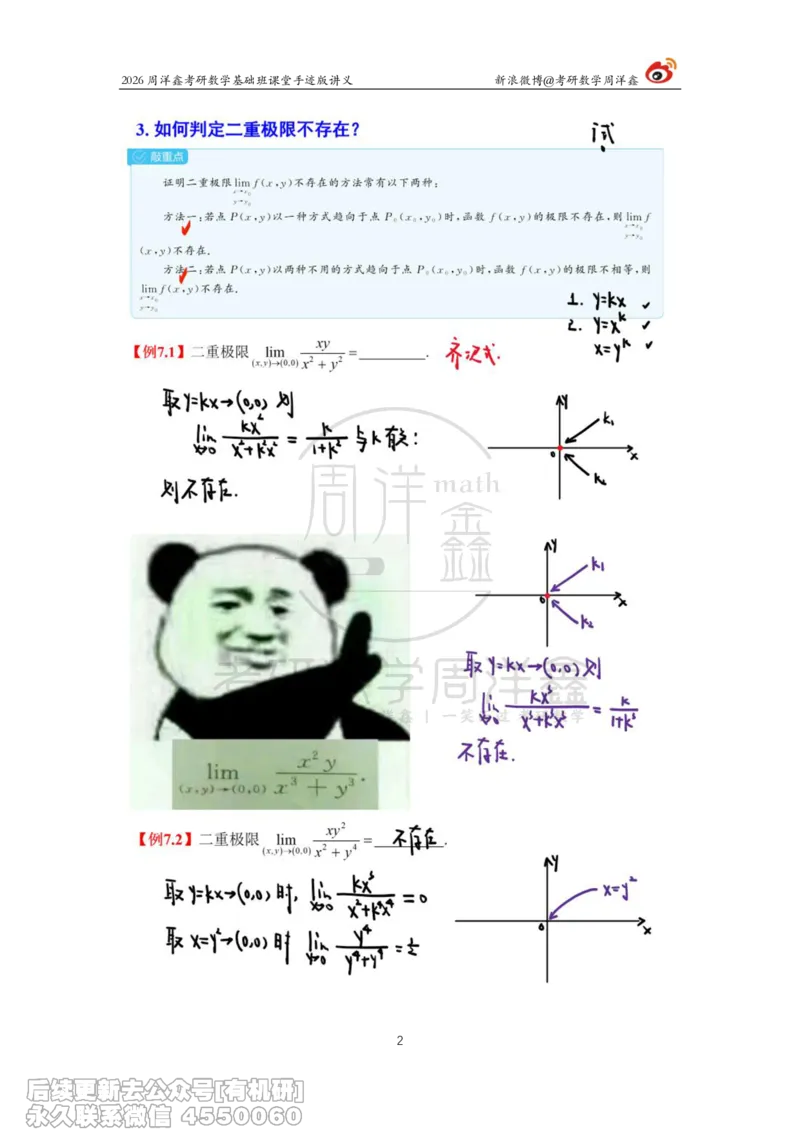 2026 周洋鑫考研数学基础班课堂手迹版讲义 新浪微博@考研数学周洋鑫
3. 如何判定二重极限不存在?
试
敲重点
证明二重极限 lim f(x,y)不存在的方法常有以下两种:
x→x₀
y→y₀
方法一:若点 P(x,y)以一种方式趋向于点 P₀(x₀,y₀)时,函数 f(x,y)的极限不存在,则 lim f
x→x₀
y→y₀
(x,y)不存在.
方法二:若点 P(x,y)以两种不用的方式趋向于点 P₀(x₀,y₀)时,函数 f(x,y)的极限不相等,则
lim f(x,y)不存在.
x→x₀
y→y₀
1. y=kx ✓
2. y=x^k ✓
x=y^k ✓
【例7.1】二重极限 lim_{(x,y)→(0,0)} xy/(x²+y²) = ________. 齐次式.
取 y=kx→(0,0) 则
lim_{x→0} kx²/(x²+k²x²) = k/(1+k²) 与k有关:
则不存在.
y
k₁
0
x
k₂
周洋 math
鑫
y
k₁
0
x
k₂
考研数学周洋鑫
取 y=kx→(0,0) 则
lim_{x→0} kx³/(x³+k³x³) = k/(1+k³)
不存在.
lim_{(x,y)→(0,0)} x²y/(x³+y³).
【例7.2】二重极限 lim_{(x,y)→(0,0)} xy²/(x²+y⁴) = 不存在.
取 y=kx→(0,0) 时, lim_{x→0} kx³/(x²+k⁴x⁴) = 0
取 x=y²→(0,0) 时 lim_{y→0} y⁴/(y⁴+y⁴) = 1/2
y
x=y²
0
x
2
后续更新去公众号[有机研]
永久联系微信 4550060